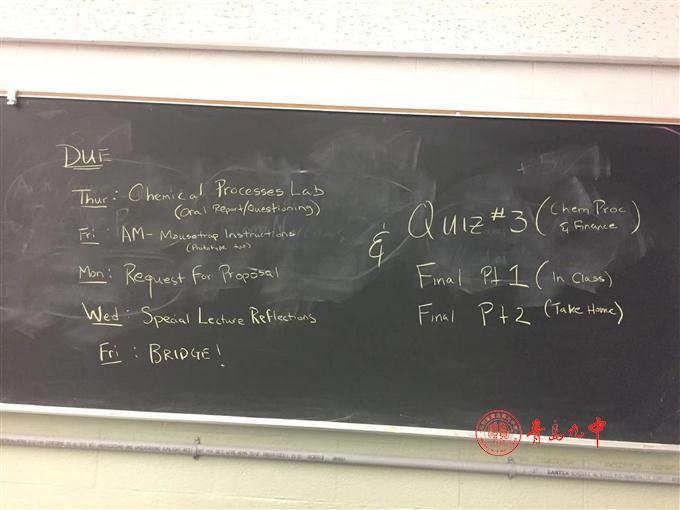 DUE
Thur: Chemical Processes Lab
(Oral Report/Questioning)
Fri: AM- Mousetrap Instructions
(Prototype too)
Mon: Request for Proposal
Wed: Special Lecture Reflections
Fri: BRIDGE!
& QUIZ #3 (Chem Proc & Finance)
Final Pt 1 (In Class)
Final Pt 2 (Take Home)
青岛九中